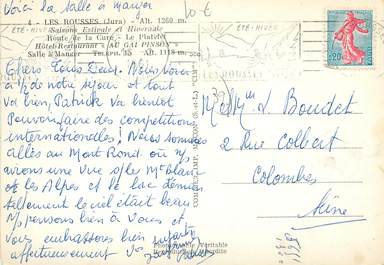 Voici la salle à manger
4 - LES ROUSSES (Jura) - Alt. 1260 m.
Saisons Estivale et Hivernale
Route de la Gare - Le Platelet
Hôtel-Restaurant "AU GAI PINSON"
Salle à Manger - Téléph. 35 - Alt. 1118 m.
10 €
ÉTÉ-HIVER
ÉTÉ-HIVER
LES ROUSSES
0,20
Chers Tous Deux. Nous voici
à 1/2 de notre séjour et tout
va bien, Patrick va bientôt
Pouvoir faire des compétitions
internationales! Nous sommes
allés au Mont Rond, où nous
avions une vue s/ le Mt blanc
et les Alpes et le lac Léman
tellement le ciel était beau
Ns pensons bien à Vous et
vous embrassons bien
affectueusement
M. et Mme L. Boudet
2 Rue Colbert
Colombes
Seine
Photographie Véritable